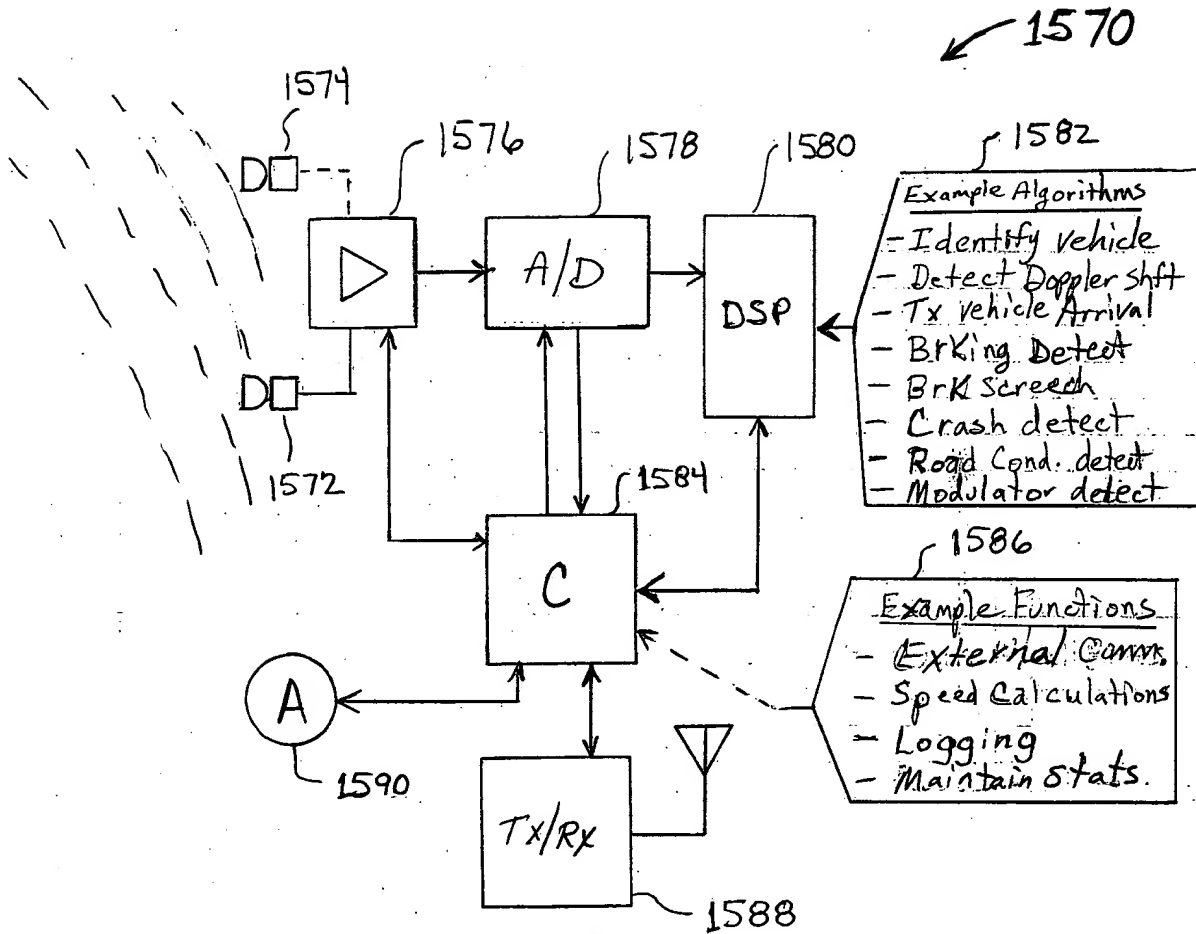 1570
1574
1576
1578
1580
1582
Example Algorithms
- Identify vehicle
- Detect Doppler shft
- Tx vehicle Arrival
- BrKing Detect
- BrK Screech
- Crash detect
- Road Cond. detect
- Modulator detect
A/D
DSP
1572
1584
C
1586
Example Functions
- External Comm.
- Speed Calculations
- Logging
- Maintain stats.
A
1590
Tx/Rx
1588